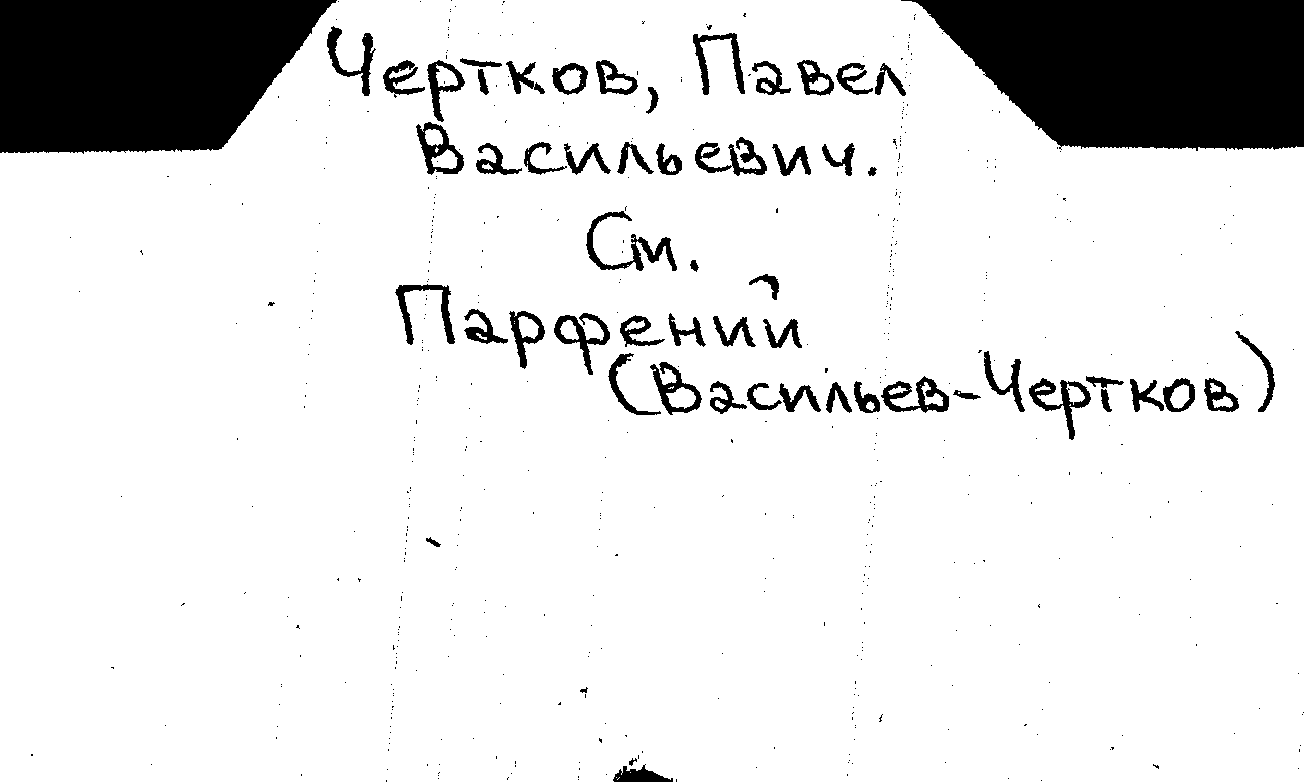 Чертков, Павел
Васильевич.
См.
Парфений
(Васильев-Чертков)